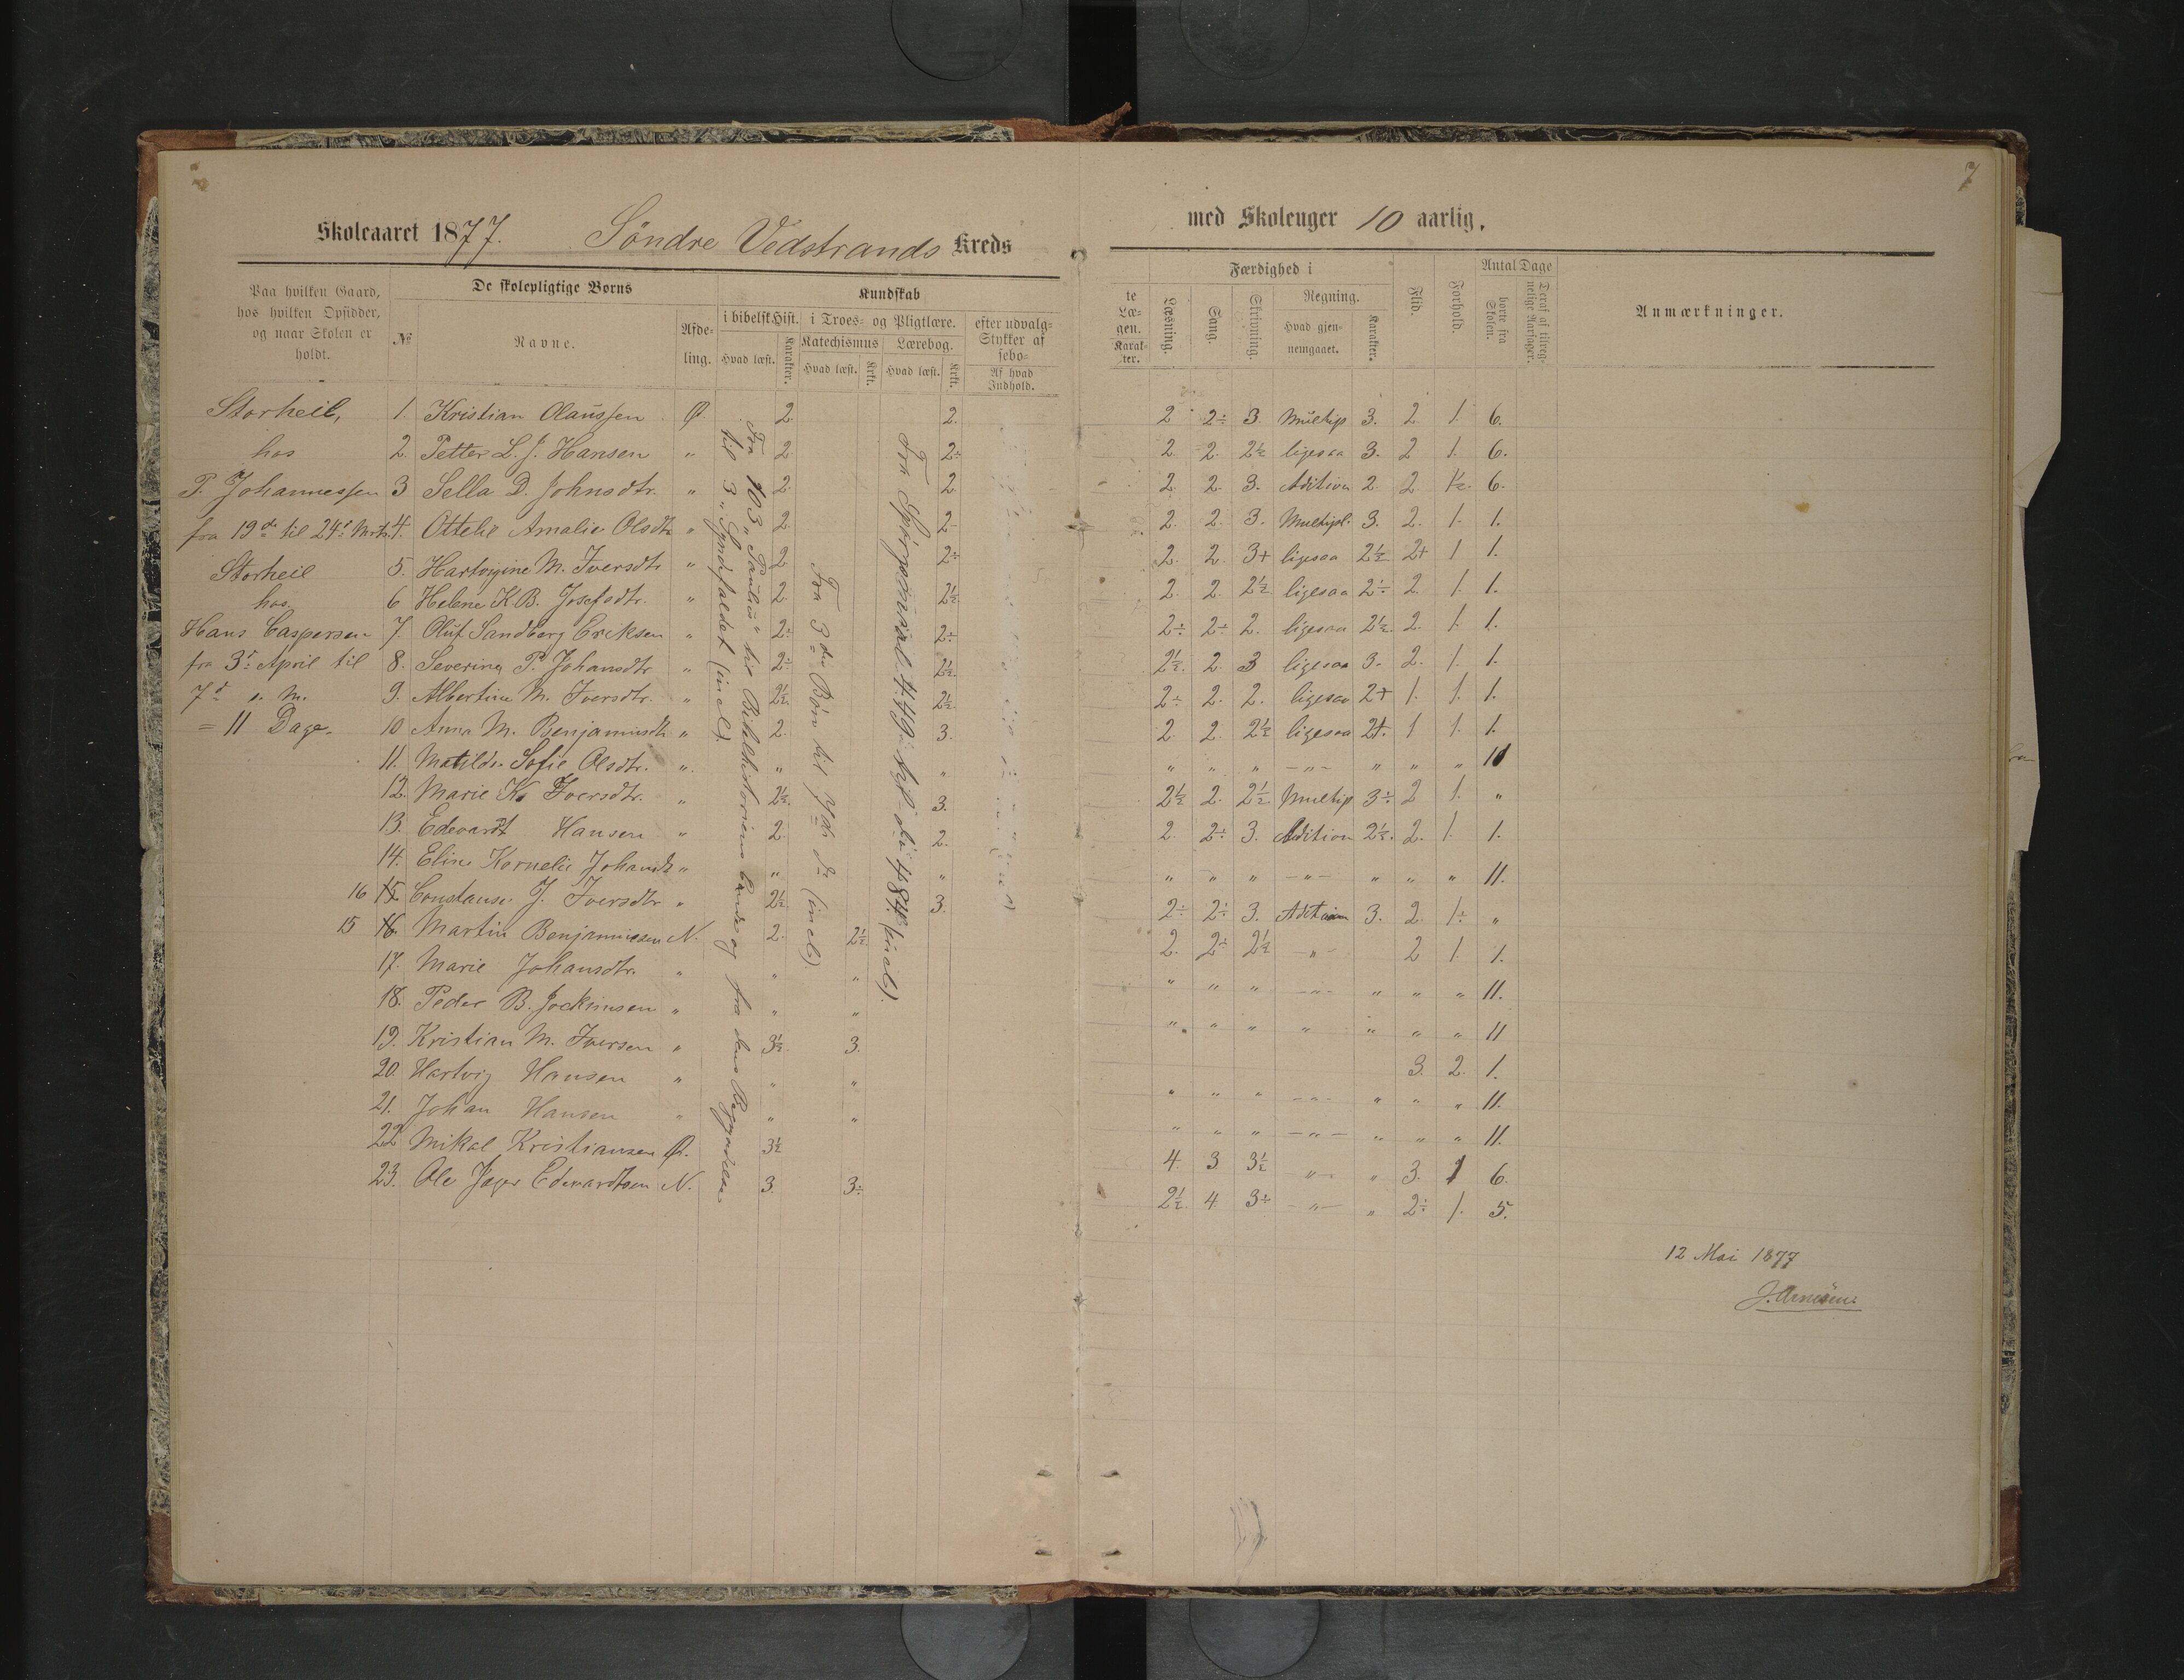 7
Skoleaaret 1877. Söndre Vedstrands Kreds
med Skoleuger 10 aarlig.
Paa hvilken Gaard, hos hvilken Opsidder, og naar Skolen er holdt.
De skolepligtige Børns
№ Navne. Afdeling.
Kundskab
i bibelsk Hist. i Troes- og Pligtlære. efter udvalg-
Stykker af
sebo-
Katechismus Lærebog.
Hvad læst. Karakter. Hvad læst. Krkt. Hvad læst. Krkt. Af hvad Indhold.
te Læ-
gen.
Karak-
ter.
Færdighed i
Læsning. Sang. Skrivning. Regning.
Hvad gjen-
nemgaaet. Karakter.
Flid. Forhold.
Antal Dage
borte fra Skolen.
Deraf af tilreg-
nelige Aarsager.
Anmærkninger.
Storheil,
hos
P. Johannessen
fra 19de til 24de Mrts.
Storheil
hos
Hans Caspersen
fra 3d April til
7d s. M.
= 11 Dage.
1. Kristian Olaussen Ø. 2. 2. 2 2÷ 3. Multip 3. 2. 1. 6.
2. Petter L. J. Hansen " 2 2÷ 2. 2. 2½ ligesaa 3. 2 1. 6.
3 Sella D. Johnsdtr. " 2. 2. 2. 2. 3. Adition 2. 2 1½. 6.
4. Ottelie Amalie Olsdtr " 2. 2- 2. 2. 3. Multipl. 3. 2. 1. 1.
5. Hartvigine M. Iversdtr " 2 2÷ 2. 2. 3+ ligesaa 2½. 2+ 1 1.
6 Helene K.B. Josefsdtr. " 2. 2½. 2. 2. 2½ ligesaa 2÷ 2. 1. 1.
7. Oluf Sandberg Eriksen " 2÷ 2÷ 2÷ 2÷ 2. ligesaa 2½. 2. 1. 1.
8. Severine P. Johansdtr " 2÷ 2½. 2½. 2. 3 ligesaa 3. 2. 1. 1.
9. Albertine M. Iversdtr. " 2½. 2½. 2÷ 2. 2. ligesaa 2+ 1. 1. 1.
10 Anna M. Benjaminsdtr " 2. 3. 2. 2. 2½ ligesaa 2+. 1 1. 1.
11. Matilde Sofie Olsdtr. " " " " " " -"- " " " 11
12. Marie K. Iversdtr. " 2½. 3. 2½ 2. 2½. Multip 3÷ 2 1. "
13. Edevardt Hansen " 2. 2. 2. 2÷ 3. Adition 2½. 2. 1. 1.
14. Eline Kornelie Johansdtr " " " " " " -"- " " " 11.
16 15 Constanse J. Iversdtr " 2½. 3. 2÷ 2÷ 3. Adition 3. 2. 1÷ "
15 16. Martin Benjaminsen N. 2. 2½. 2. 2÷ 2½ -"- 2 1. 1.
17. Marie Johansdtr. " " " " " " -"- " " " 11.
18. Peder B. Jockimsen " " " " " " " " " " 11
19. Kristian M. Iversen " 3½. 3. 3. 2. 1.
20. Hartvig Hansen " " " " " " -"- " " " 11.
21. Johan Hansen " " " " " " -"- " " " 11.
22 Mikal Kristiansen Ø. 3½ 4. 3 3½ "- " 3. 1 6.
23. Ole Jager Edevardtsen N. 3. 3÷ 2½. 4 3÷ -"- " 2÷ 1. 5.
Fra 103 "Paulus" til Bibelhistoriens Ende og fra dens Begyndelse
til 3 "Syndefaldet (incl).
Fra 3die Bön til 7de do (incl).
Fra Spörgsmaal 449 til do 484 (incl).
12 Mai 1877